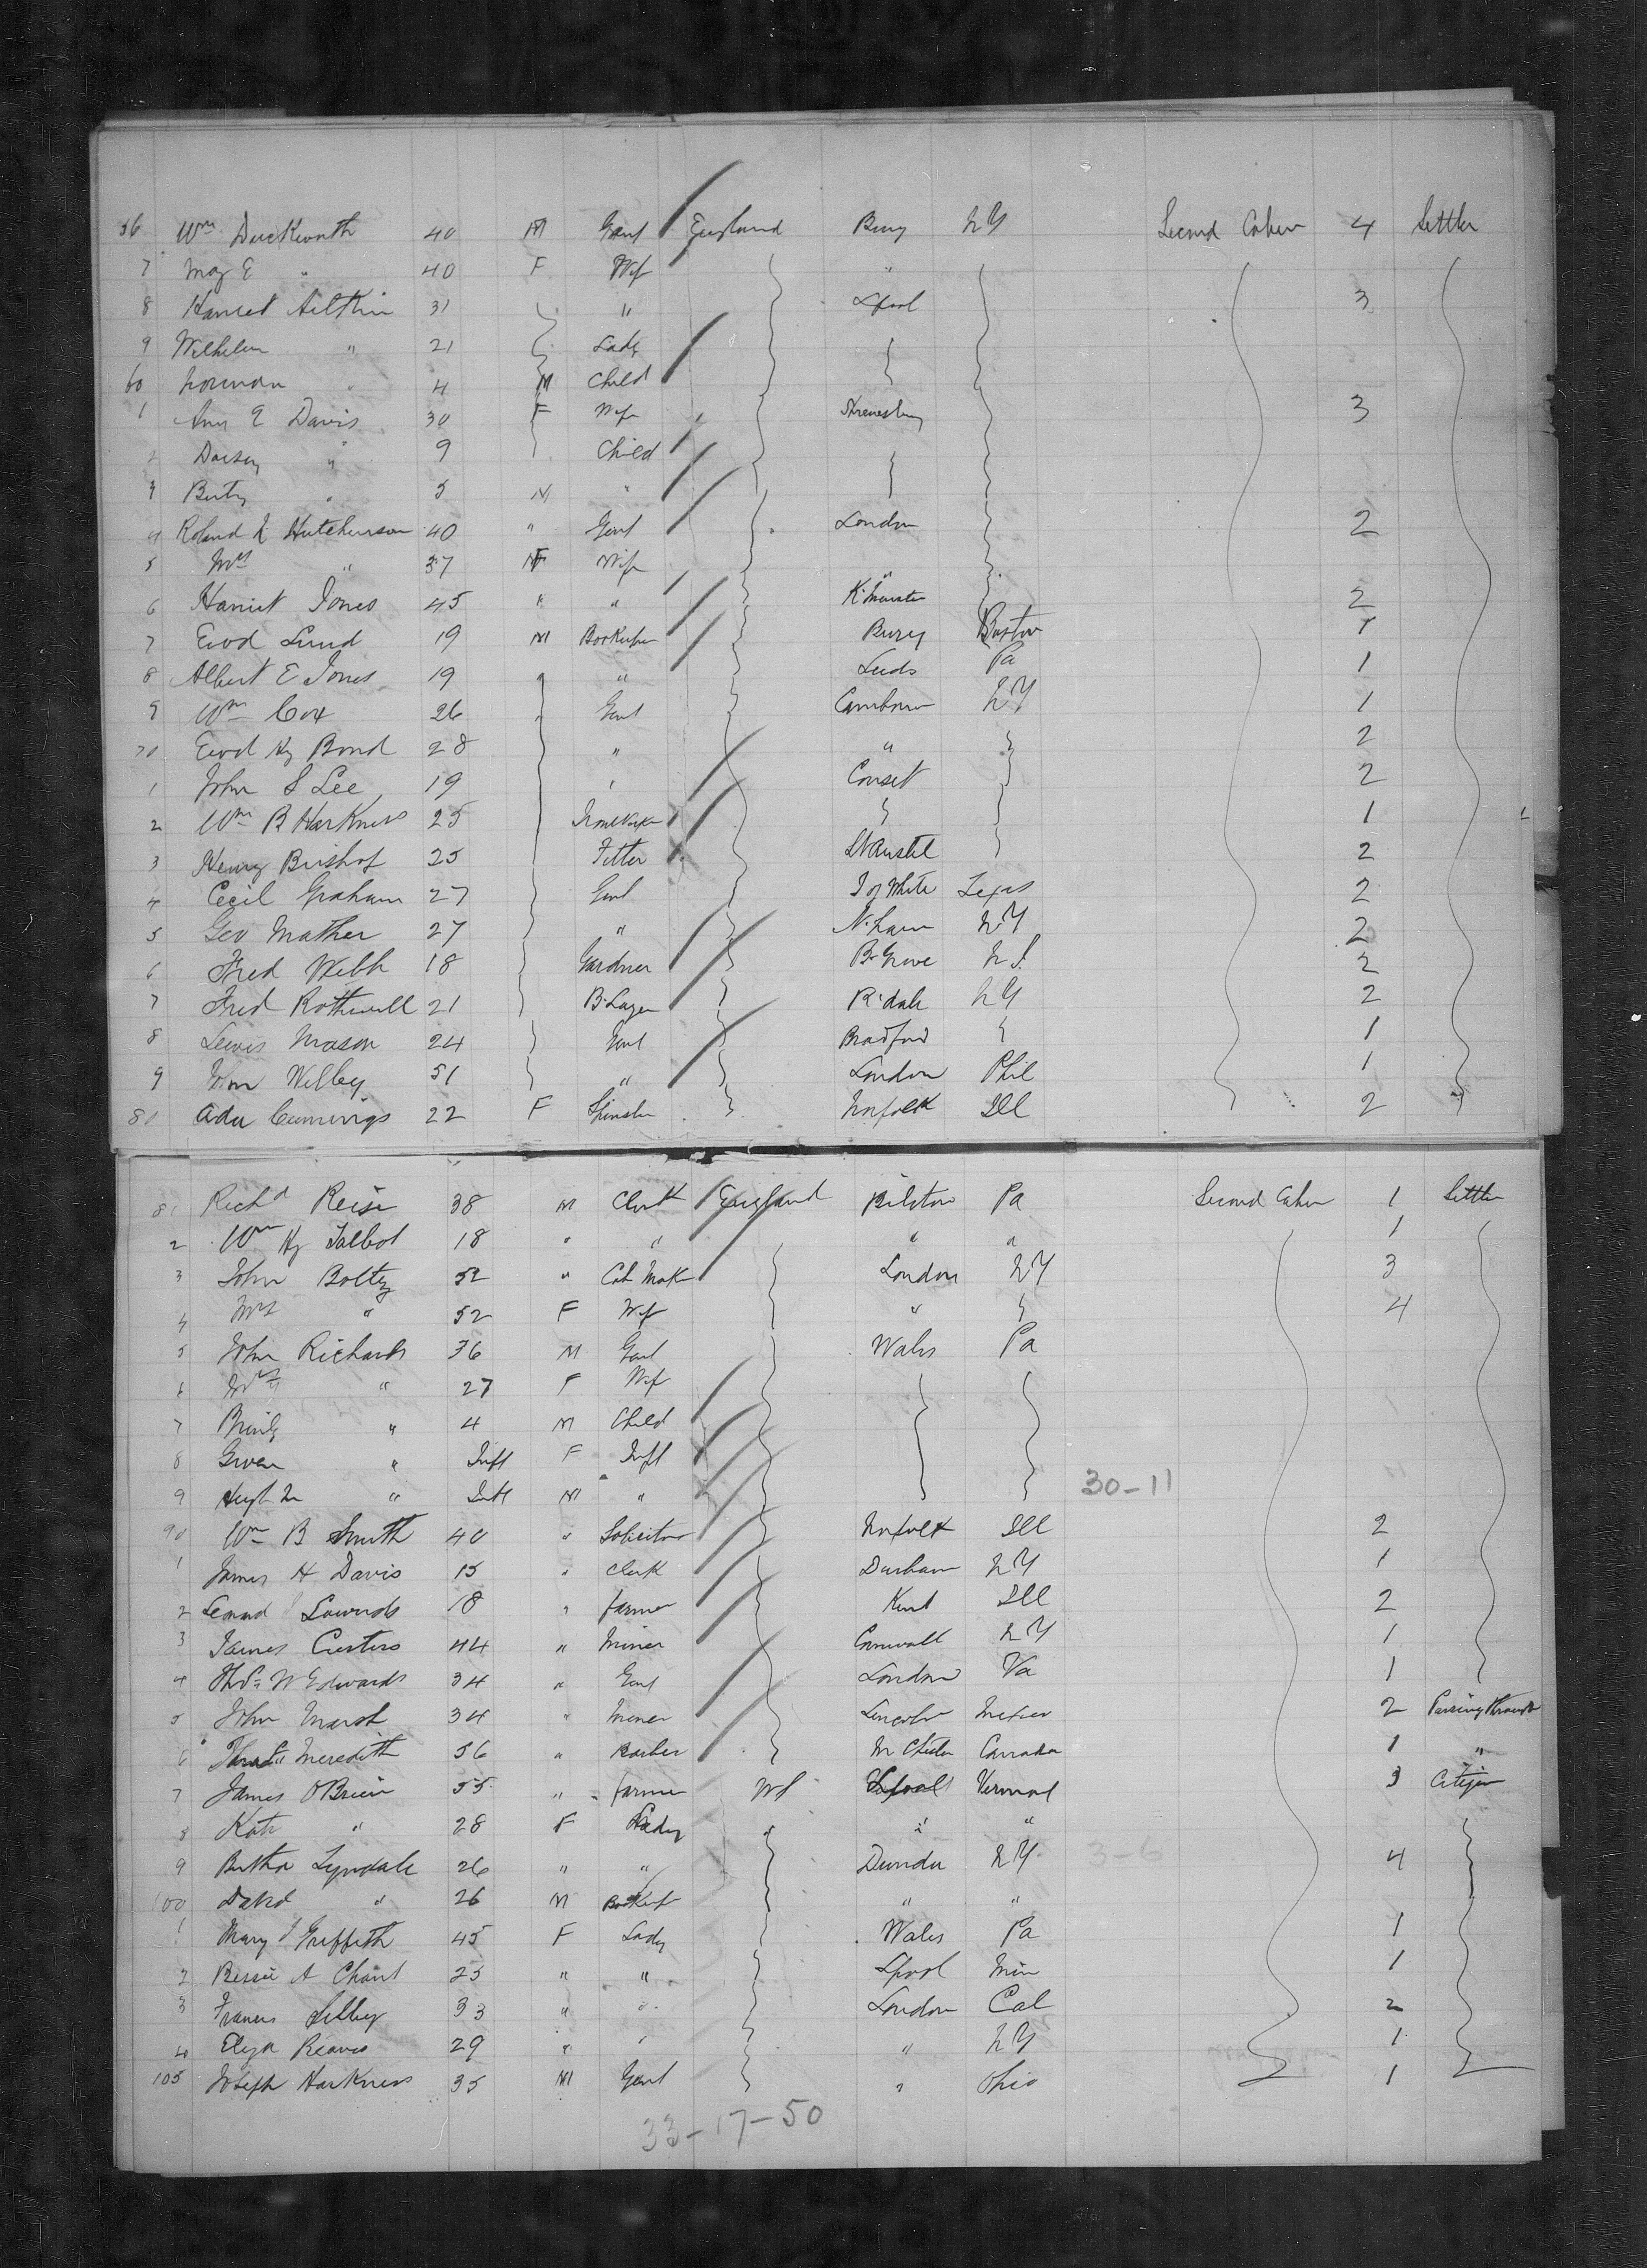 56 Wm Duckworth 40 M Gent England Bury NY Second Cabin 4 Settler
7 " 40 F Wife "
8 Harriet Aitkin 31 " Lpool 3
9 " 21 Lady
60 Norman " 4 M Child
1 Ann E Davis 30 F Wife " Shrewsbury 3
2 " 9 Child
3 Berty " 5 M "
4 Roland Hutchinson 40 " Gent London 2
5 Mrs " 37 F Wife "
6 Harriet Jones 45 " " K. Minster 2
7 Ewd Lund 19 M Bookeeper Bury Boston 1
8 Albert E Jones 19 " " Leeds Pa 1
9 Wm Cox 26 " Gent Camborne NY 1
70 Ewd Hy Bond 28 " " 2
1 John S Lee 19 " Conset 2
2 Wm B Harkness 25 1
3 Henry Bishop 25 Fitter St Austel 2
4 Cecil Graham 27 Gent I of White Texas 2
5 Geo Mather 27 " N. Ham NY 2
6 Fred Webb 18 Gardner B. Grove NJ 2
7 Fred Rothwell 21 B. Layer R. dale NY 2
8 Lewis Mason 24 Gent Bradford 1
9 Wilbey 51 " London Phil 1
80 Ada Cummings 22 F Spinster Norfolk Ill 2
81 Richd 38 M Clerk England Bilston Pa Second Cabin 1 Settler
2 Wm Hy Talbot 18 " " " " 1
3 John 52 " Cab Mak London NY 3
4 Mrs " 52 F Wife " 4
5 John Richards 36 M Gent Wales Pa
6 Mrs " 27 F Wife
7 " 4 M Child
8 Gwen " Inft F Inft
9 Hugh " Inft M " 30-11
90 Wm B Smith 40 " Solicitor Norfolk Ill 2
1 James H Davis 15 " Clerk Durham NY 1
2 Lownds 18 " farmer Kent Ill 2
3 James 44 " Miner Cornwall NY 1
4 Thos W Edwards 34 " Gent London Va 1
5 John Marsh 34 " Miner Lincoln Mexico 2 Passing through
6 Thos Meredith 56 " M Chester Canada 1 "
7 James OBrien 55 " farmer Lpool Vermont 3 Citizen
8 Kate " 28 F Lady " " "
9 Bertha Lyndale 26 " " Dundee NY 3-6 4
100 David " 26 M Bookeep " "
1 Mary J Griffith 45 F Lady Wales Pa 1
2 Bessie A Chant 25 " " Lpool Min 1
3 Frances 33 " " London Cal 2
4 Eliza Reaves 29 " " " NY 1
105 Joseph Harkness 35 M Gent " Ohio 1
33-17-50